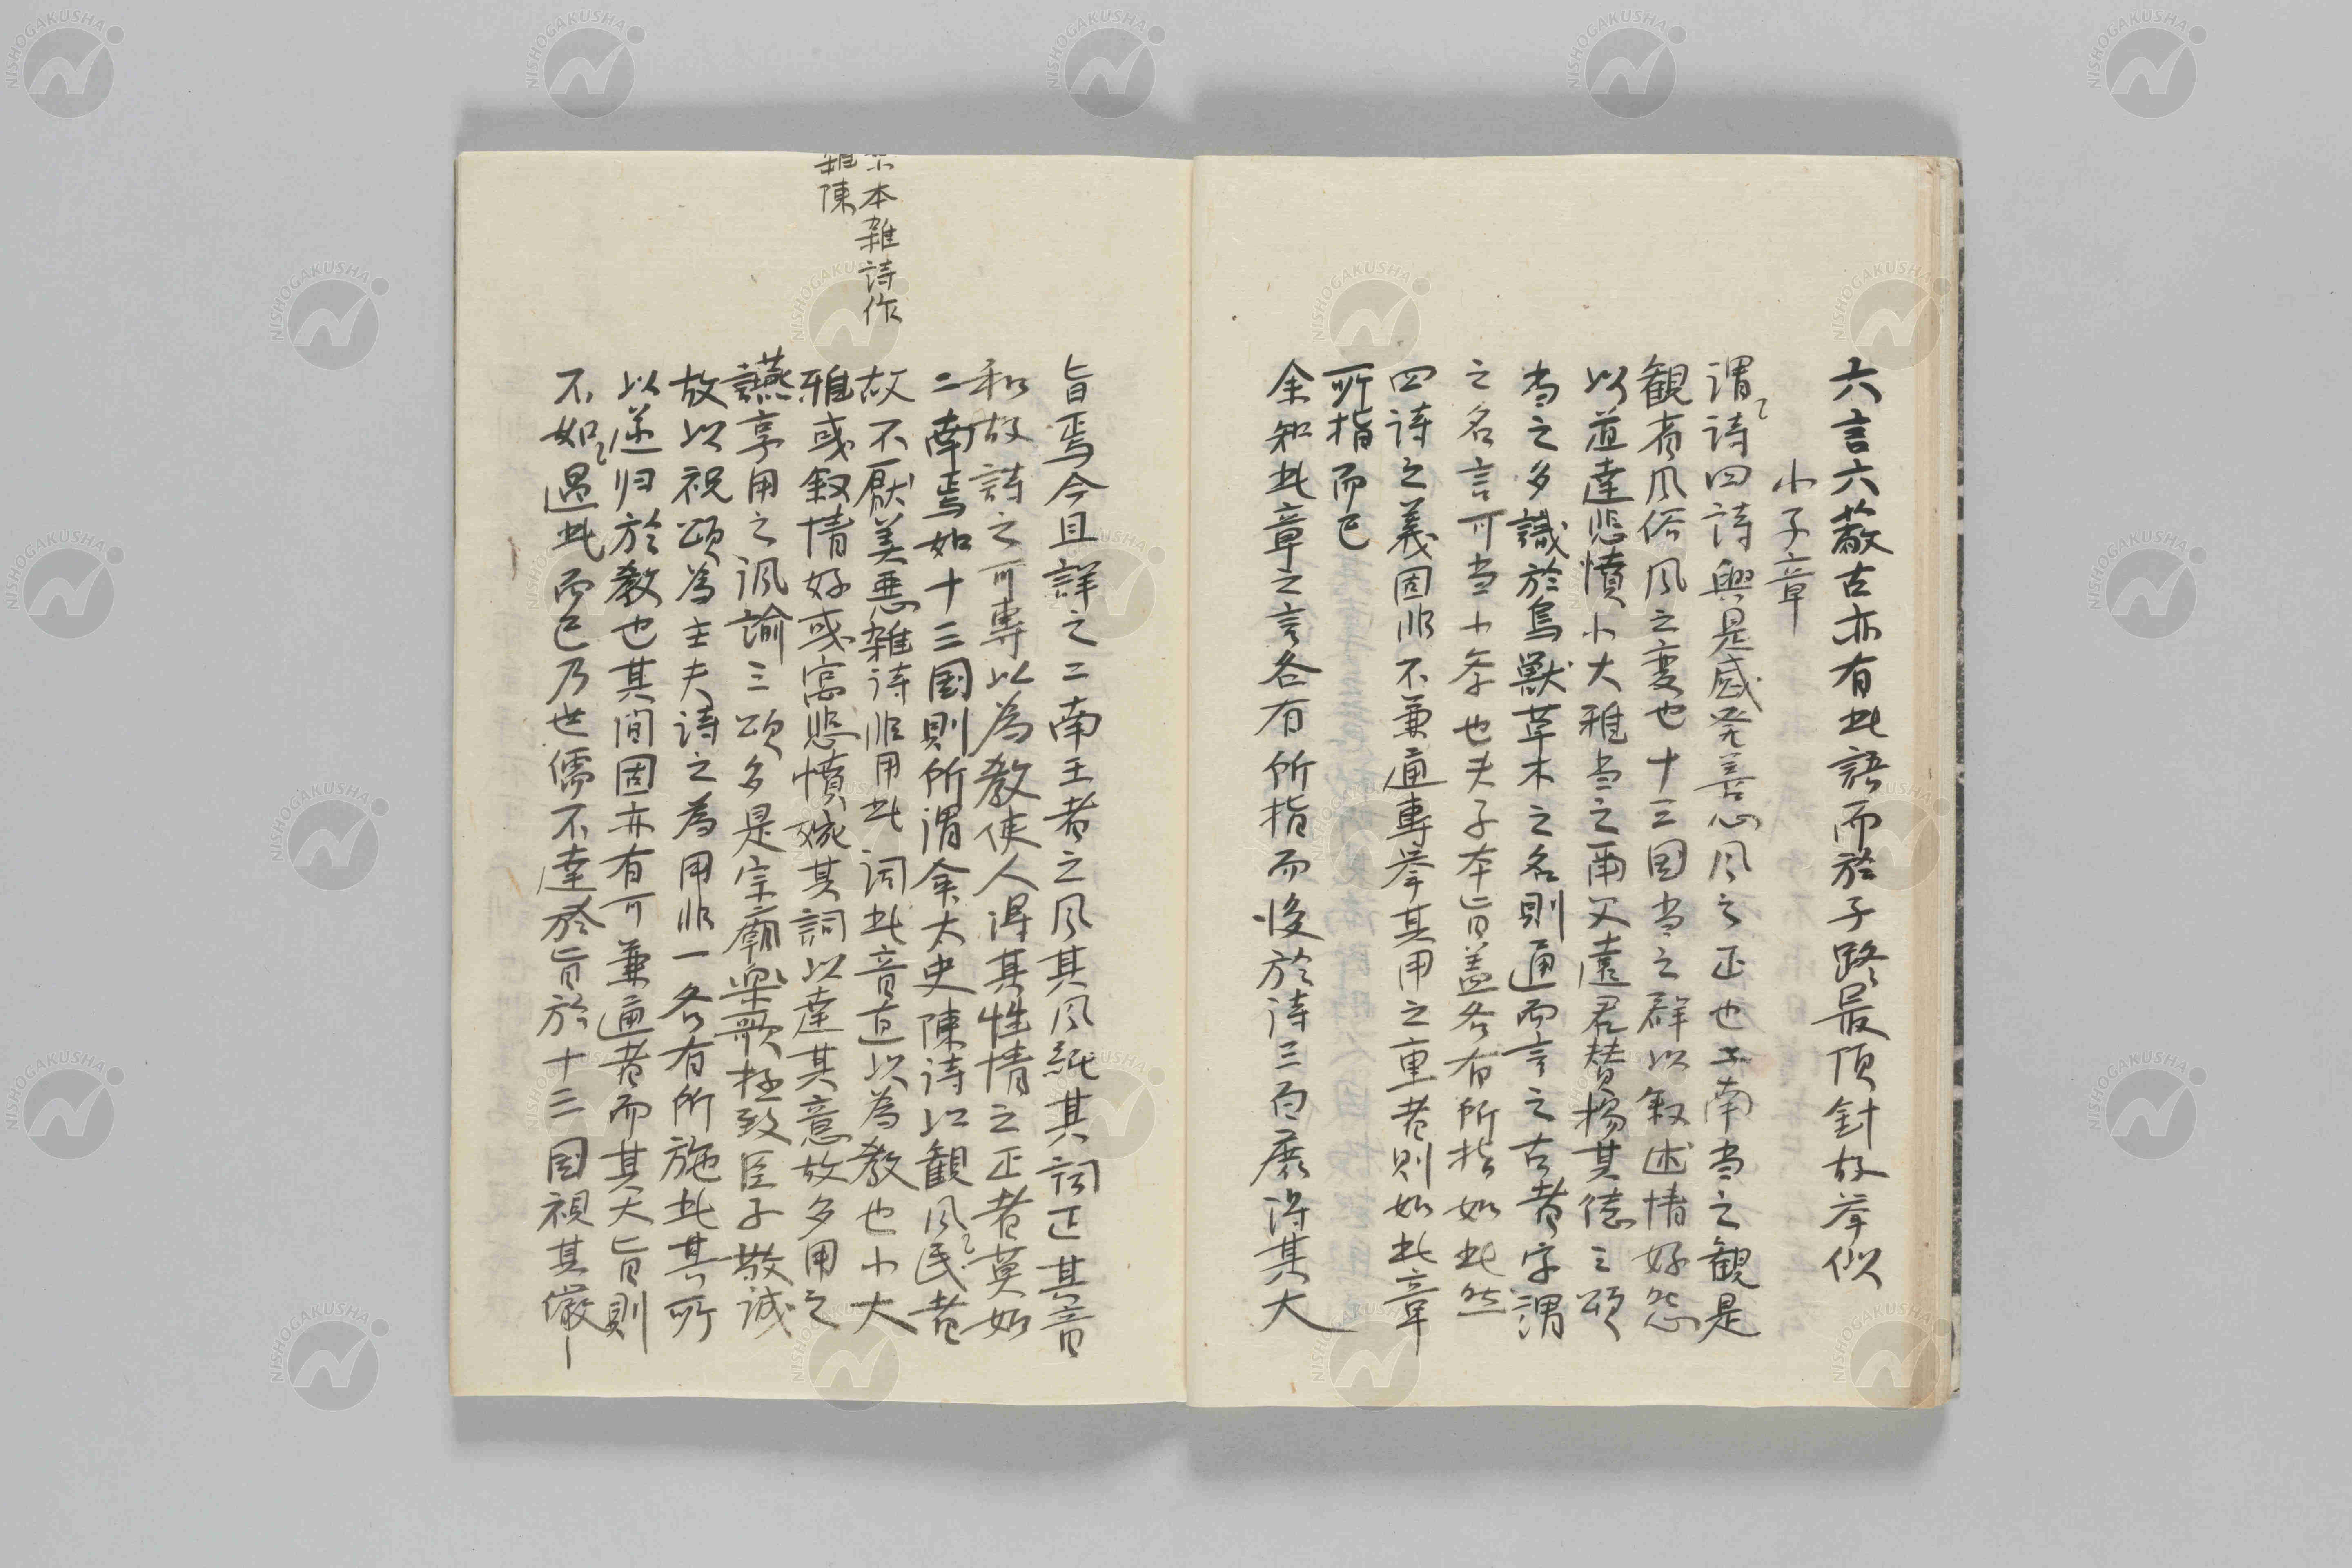 六言六蔽古亦有此語而於子路最頂針故挙似
小子章
謂詩四詩興是感発善心風之正也二南当之観是
観者風俗風之変也十三国当之群以叙述情好怨
以道達悲憤小大雅当之爾父遠君賛揚其徳三頌
当之多識於鳥獣草木之名則通而言之古者字謂
之名言可当小学也夫子本旨盖各有所指如此然
四詩之義固非不兼通専挙其用之重者則如此章
所指而已
余知此章之言各有所指而後於詩三百庶得其大
旨焉今且詳之二南王者之風其風純其詞正其音
和故詩之可専以為教使人得其性情之正者莫如
二南焉如十三国則所謂余太史陳詩以観風民者
故不厭美悪雑詩非用此詞此音直以為教也小大
雅或叙情好或寓悲憤婉其詞以達其意故多用之
讌享用之諷諭三頌多是宗廟楽歌極致臣子敬誠
故以祝頌為主夫詩之為用非一各有所施此其所
以逆归於教也其間固亦有可兼通者而其大旨則
不如過此而已乃世儒不達於旨於十三国視其儼
本雑詩作
雑陳
NISHOGAKUSHA